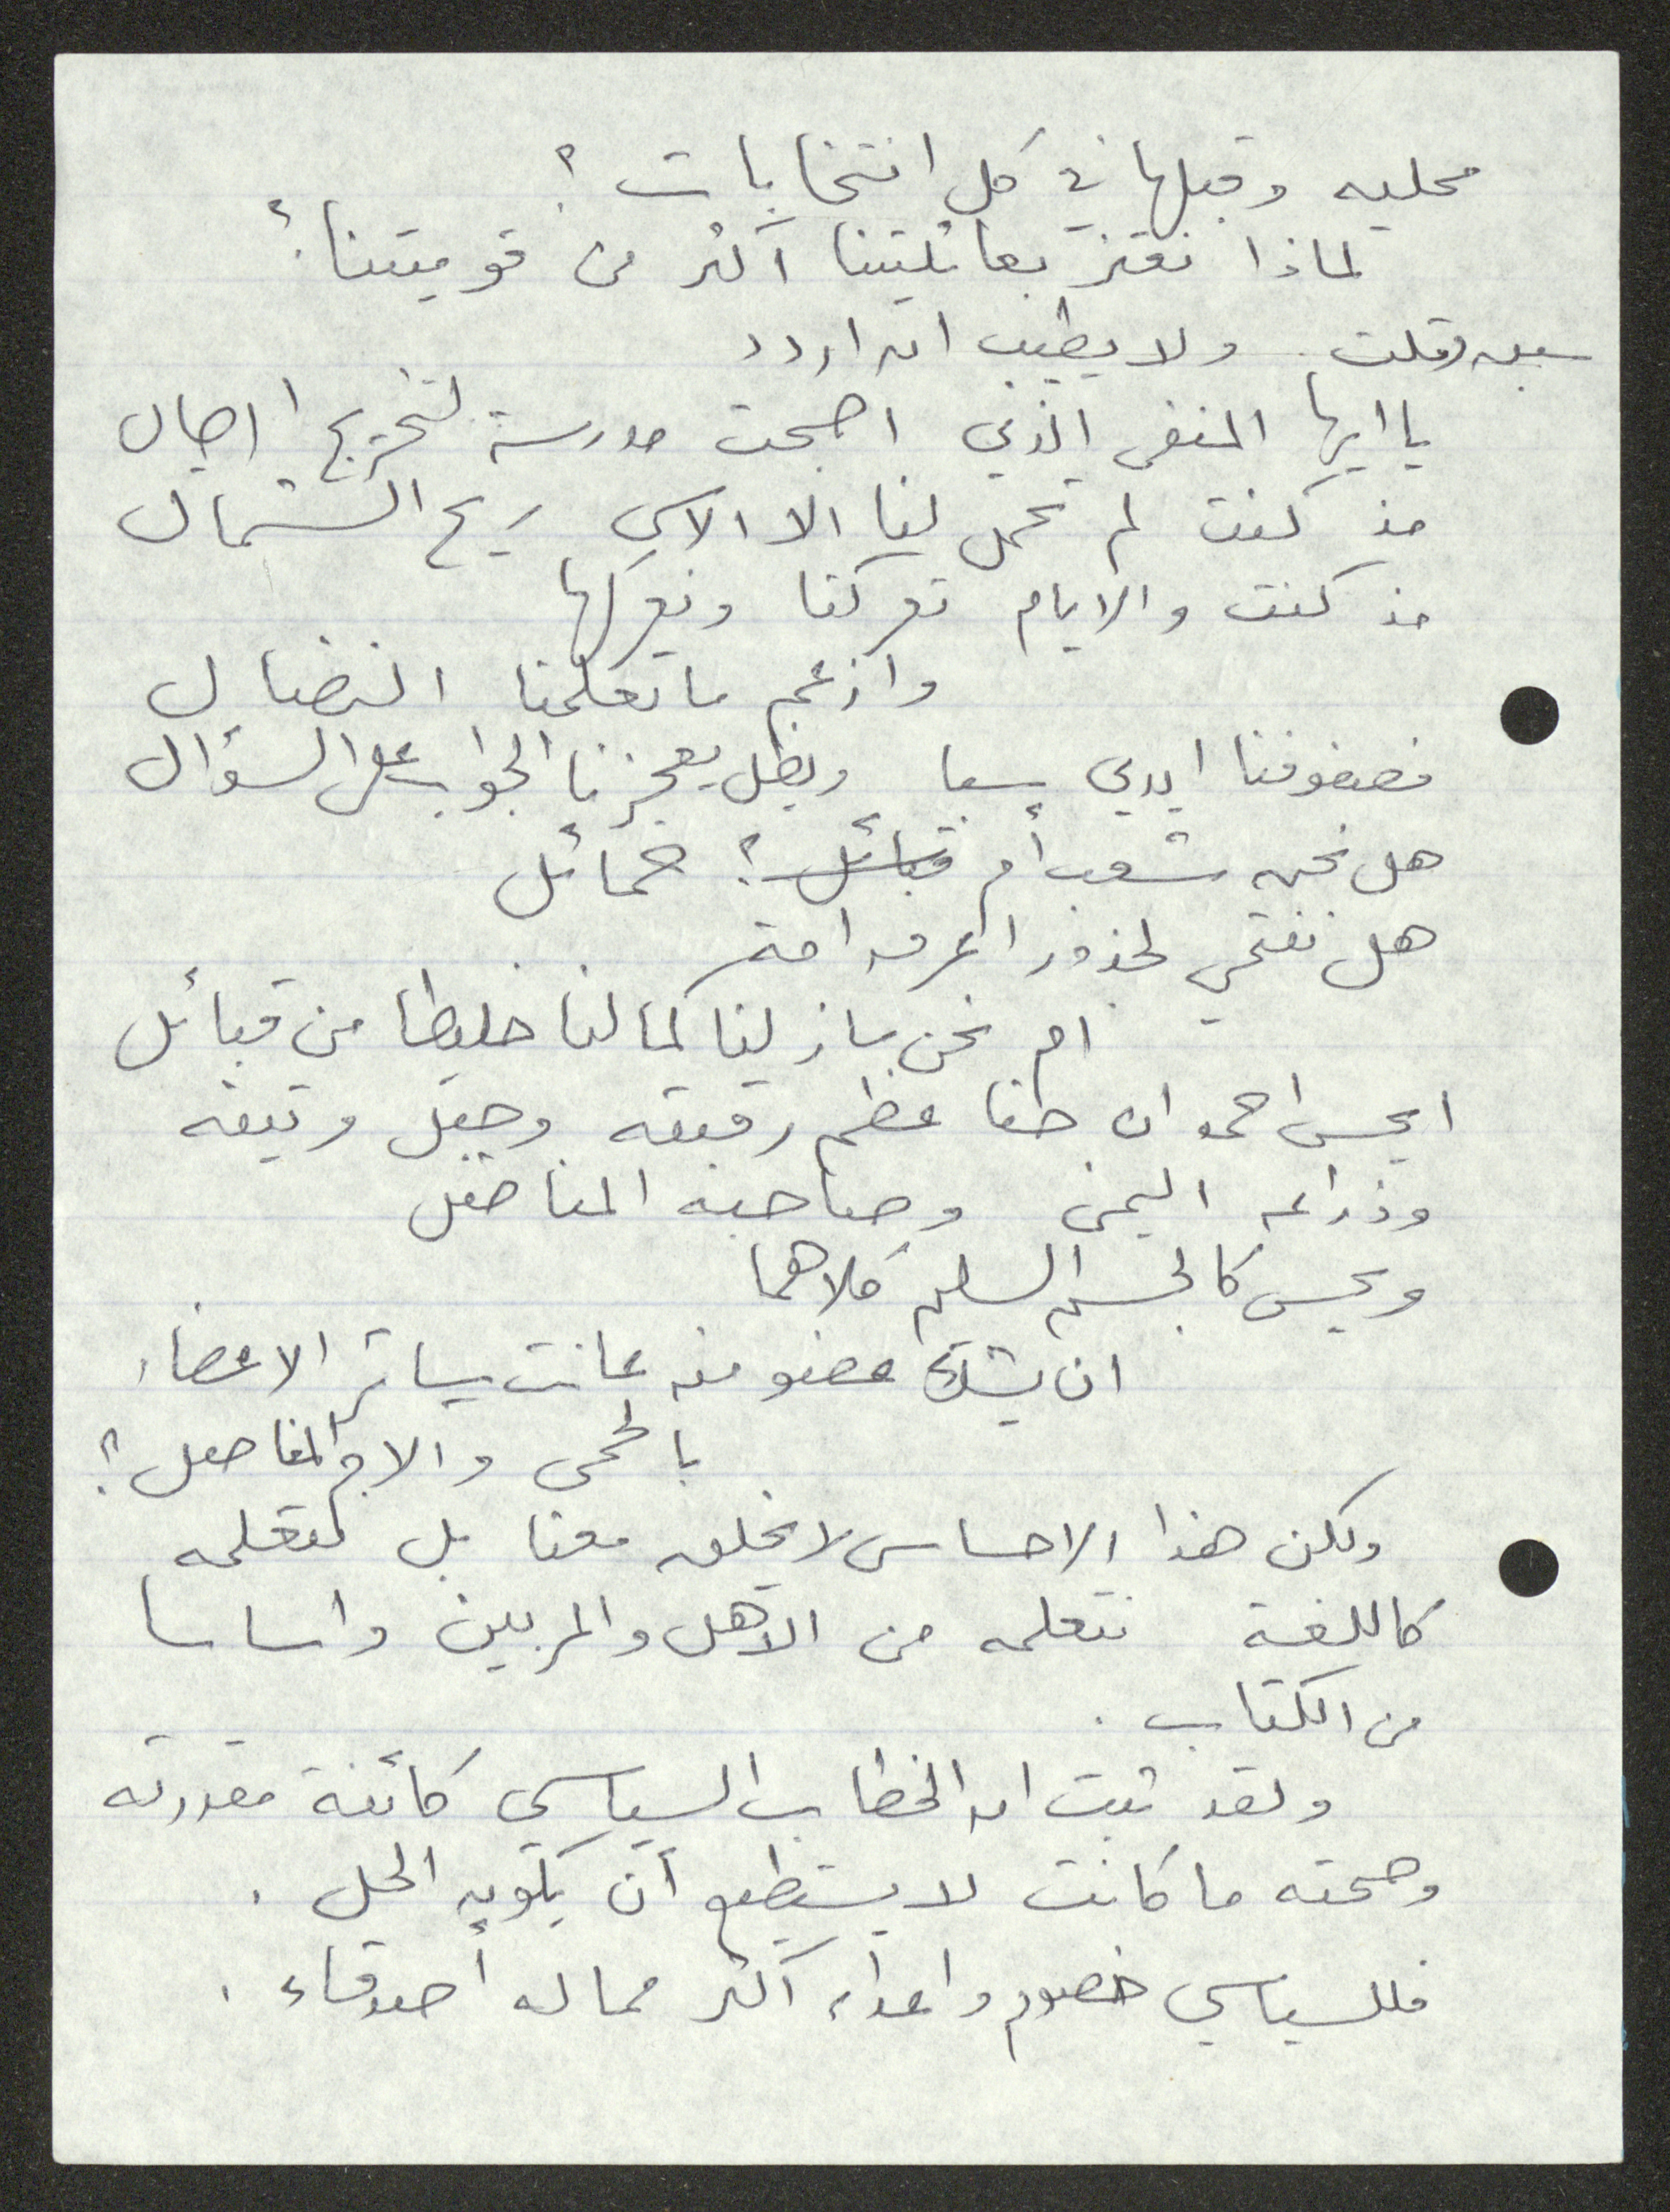 محليه وقبلها في كل انتخابات ؟
لماذا نعتز بعائليتنا أكثر من قوميتنا ؟
سبق وقلت ولا يطيب ان اردد
يا ايها المنفى الذي اصبحت مدرسة لتخريج اجيال
مذ كنت لم تحمل لنا الا الاسى ريح الشمال
مذ كنت والايام تعركنا ونعركها
وازعم ما تعلمنا النضال
فصفوفنا ايدي سبا ويظل يعجزنا الجواب على السؤال
هل نحن شعب أم قبائل ؟ حمائل
هل ننتمي لجذور اعرق امة
ام نحن ما زلنا كما لنا خليطا من قبائل
ايحس احمد ان حنا عظم رقبته وحبل وتينه
وذراعه اليمنى وصاحبه المناضل
ويحس كالجسم السليم كلاهما
ان يشك عضو منه عانت سائر الاعضاء
بالحمى والام المفاصل ؟
ولكن هذا الاحساس لا يخلق معنا بل نتعلمه
كاللغة نتعلمه من الاهل والمربين واساسا
من الكتاب .
ولقد ثبت ان الخطاب السياسي كائنة مقدرته
وصحته ما كانت لا يستطيع أن يكون الحل .
فللسياسي خصوم واعداء أكثر مما له أصدقاء .